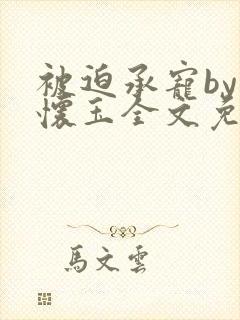 被迫承寵by
懷玉全文免
馬文雲